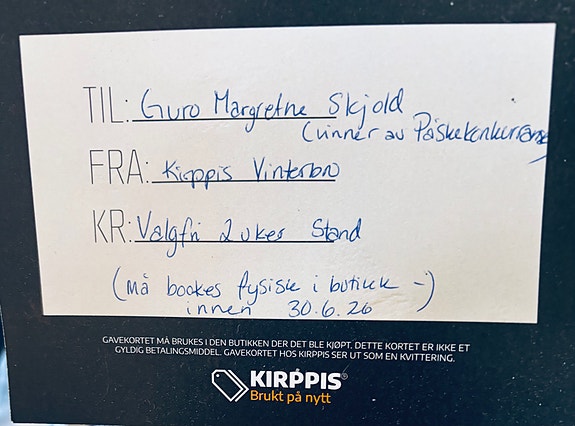 TIL: Guro Margrethe Skjold
(vinner av Påskekonkurranse)
FRA: Kirppis Vinterbro
KR: Valgfri 2 ukes Stand
(må bookes fysisk i butikk :-)
innen 30.6.26
GAVEKORTET MÅ BRUKES I DEN BUTIKKEN DER DET BLE KJØPT. DETTE KORTET ER IKKE ET
GYLDIG BETALINGSMIDDEL. GAVEKORTET HOS KIRPPIS SER UT SOM EN KVITTERING.
KIRPPIS®
Brukt på nytt